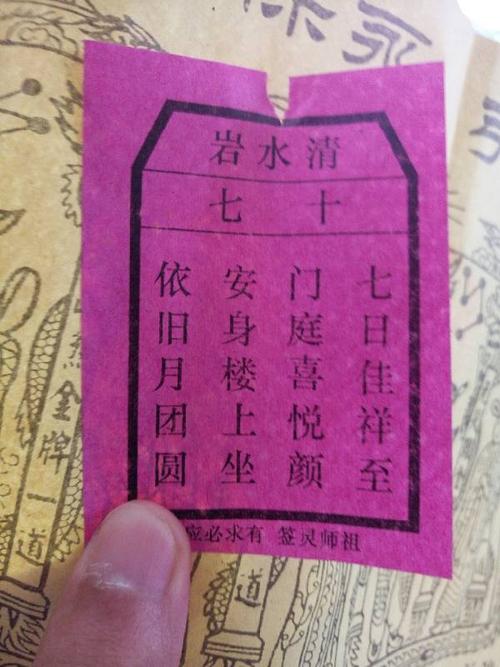 清水岩
十七
七日佳祥至
门庭喜悦颜
安身楼上坐
依旧月团圆
祖师灵签 有求必应
金牌一道
道